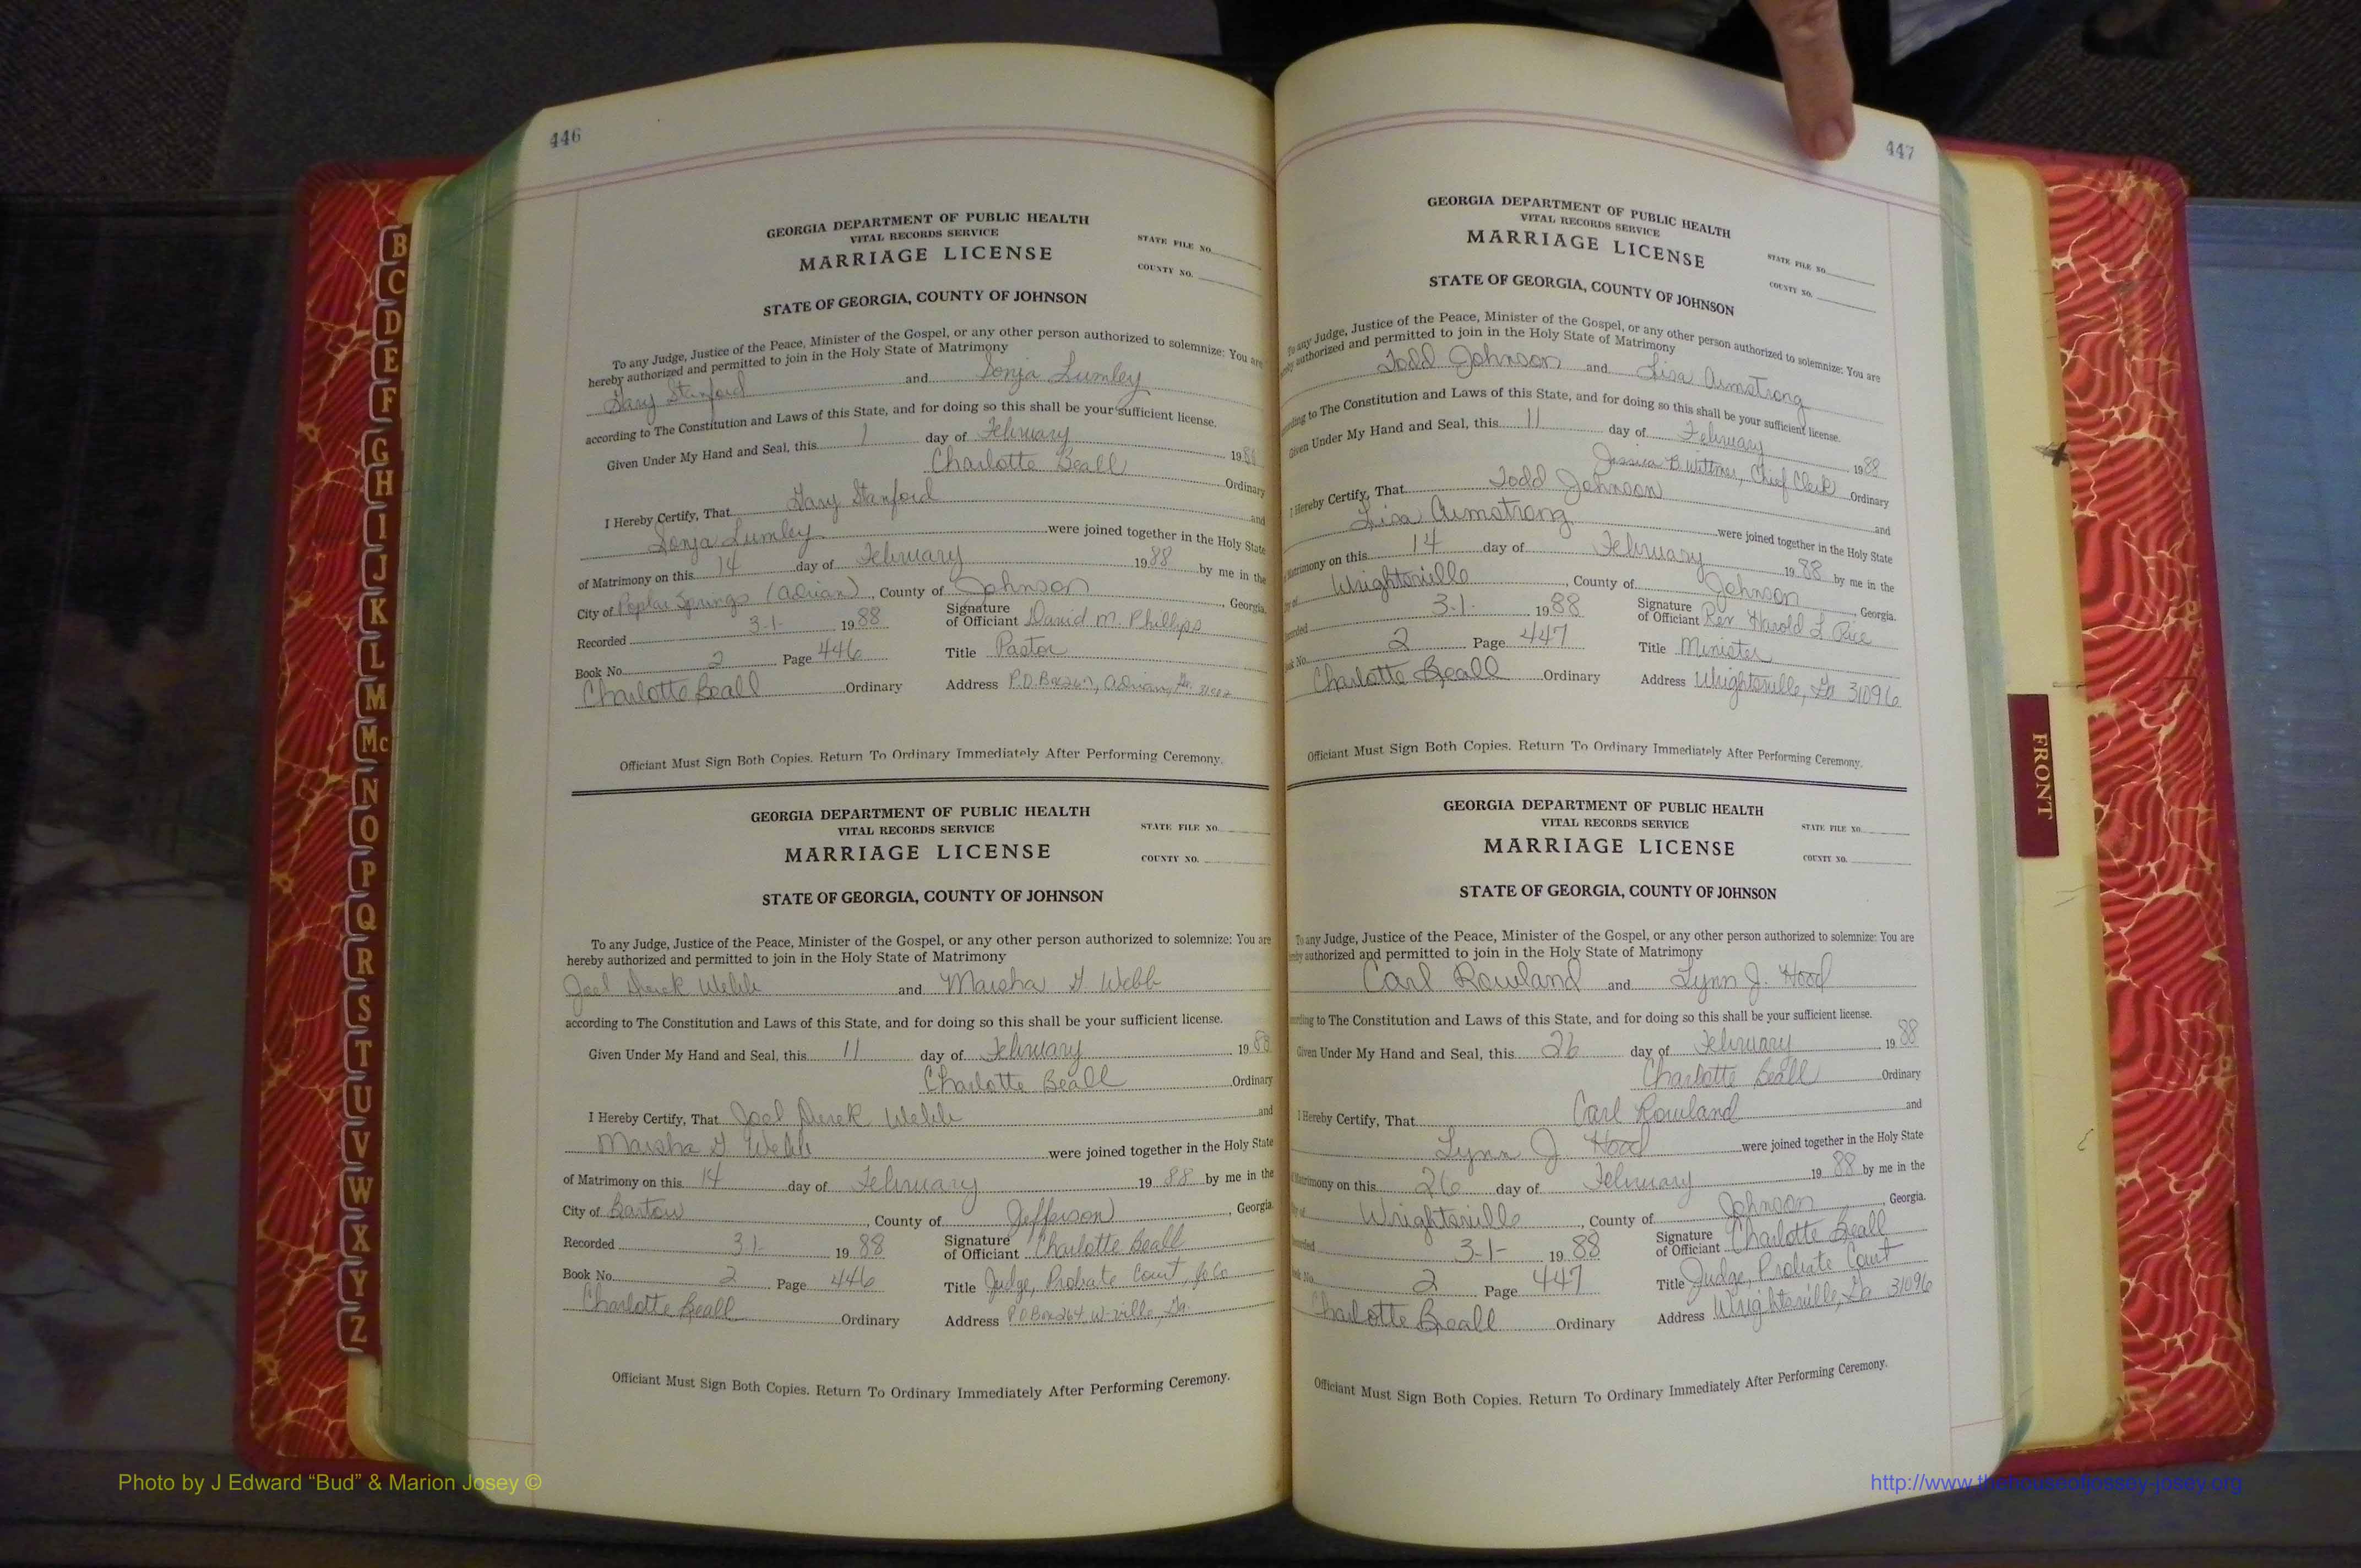 446
GEORGIA DEPARTMENT OF PUBLIC HEALTH
VITAL RECORDS SERVICE
MARRIAGE LICENSE
STATE FILE NO.
COUNTY NO.
STATE OF GEORGIA, COUNTY OF JOHNSON
To any Judge, Justice of the Peace, Minister of the Gospel, or any other person authorized to solemnize: You are
hereby authorized and permitted to join in the Holy State of Matrimony
Gary Stanford and Sonja Lumley
according to The Constitution and Laws of this State, and for doing so this shall be your sufficient license.
Given Under My Hand and Seal, this 1 day of February 1988
Charlotte Beall Ordinary
I Hereby Certify, That Gary Stanford and
Sonja Lumley were joined together in the Holy State
of Matrimony on this 14 day of February 1988 by me in the
City of Poplar Springs (Adrian), County of Johnson, Georgia.
Recorded 3-1- 1988 Signature of Officiant David M. Phillips
Book No. 2 Page 446 Title Pastor
Charlotte Beall Ordinary Address P.O. Box 267, Adrian, Ga. 31002
Officiant Must Sign Both Copies. Return To Ordinary Immediately After Performing Ceremony.
GEORGIA DEPARTMENT OF PUBLIC HEALTH
VITAL RECORDS SERVICE
MARRIAGE LICENSE
STATE FILE NO.
COUNTY NO.
STATE OF GEORGIA, COUNTY OF JOHNSON
To any Judge, Justice of the Peace, Minister of the Gospel, or any other person authorized to solemnize: You are
hereby authorized and permitted to join in the Holy State of Matrimony
Joel Derek Webb and Marsha G Webb
according to The Constitution and Laws of this State, and for doing so this shall be your sufficient license.
Given Under My Hand and Seal, this 11 day of February 1988
Charlotte Beall Ordinary
I Hereby Certify, That Joel Derek Webb and
Marsha G Webb were joined together in the Holy State
of Matrimony on this 14 day of February 1988 by me in the
City of Bartow, County of Jefferson, Georgia.
Recorded 3-1- 1988 Signature of Officiant Charlotte Beall
Book No. 2 Page 446 Title Judge, Probate Court, Jo Co
Charlotte Beall Ordinary Address P.O. Box 264, W-ville, Ga.
Officiant Must Sign Both Copies. Return To Ordinary Immediately After Performing Ceremony.
447
GEORGIA DEPARTMENT OF PUBLIC HEALTH
VITAL RECORDS SERVICE
MARRIAGE LICENSE
STATE FILE NO.
COUNTY NO.
STATE OF GEORGIA, COUNTY OF JOHNSON
To any Judge, Justice of the Peace, Minister of the Gospel, or any other person authorized to solemnize: You are
authorized and permitted to join in the Holy State of Matrimony
Todd Johnson and Lisa Armstrong
to The Constitution and Laws of this State, and for doing so this shall be your sufficient license.
Given Under My Hand and Seal, this 11 day of February 1988
Jessica B. Wittmer, Chief Clerk Ordinary
I Hereby Certify, That Todd Johnson and
Lisa Armstrong were joined together in the Holy State
Matrimony on this 14 day of February 1988 by me in the
Wrightsville, County of Johnson, Georgia.
3-1- 1988 Signature of Officiant Rev. Harold L. Rice
2 Page 447 Title Minister
Charlotte Beall Ordinary Address Wrightsville, Ga 31096
Officiant Must Sign Both Copies. Return To Ordinary Immediately After Performing Ceremony.
GEORGIA DEPARTMENT OF PUBLIC HEALTH
VITAL RECORDS SERVICE
MARRIAGE LICENSE
STATE FILE NO.
COUNTY NO.
STATE OF GEORGIA, COUNTY OF JOHNSON
To any Judge, Justice of the Peace, Minister of the Gospel, or any other person authorized to solemnize: You are
authorized and permitted to join in the Holy State of Matrimony
Carl Rowland and Lynn J. Hood
to The Constitution and Laws of this State, and for doing so this shall be your sufficient license.
Given Under My Hand and Seal, this 26 day of February 1988
Charlotte Beall Ordinary
I Hereby Certify, That Carl Rowland and
Lynn J. Hood were joined together in the Holy State
Matrimony on this 26 day of February 1988 by me in the
Wrightsville, County of Johnson, Georgia.
3-1- 1988 Signature of Officiant Charlotte Beall
2 Page 447 Title Judge, Probate Court
Charlotte Beall Ordinary Address Wrightsville, Ga 31096
Officiant Must Sign Both Copies. Return To Ordinary Immediately After Performing Ceremony.
B
C
D
E
F
G
H
I
J
K
L
M
Mc
N
O
P
Q
R
S
T
U
V
W
X
Y
Z
FRONT
Photo by J Edward “Bud” & Marion Josey ©
http://www.thehouseofjossey-josey.org